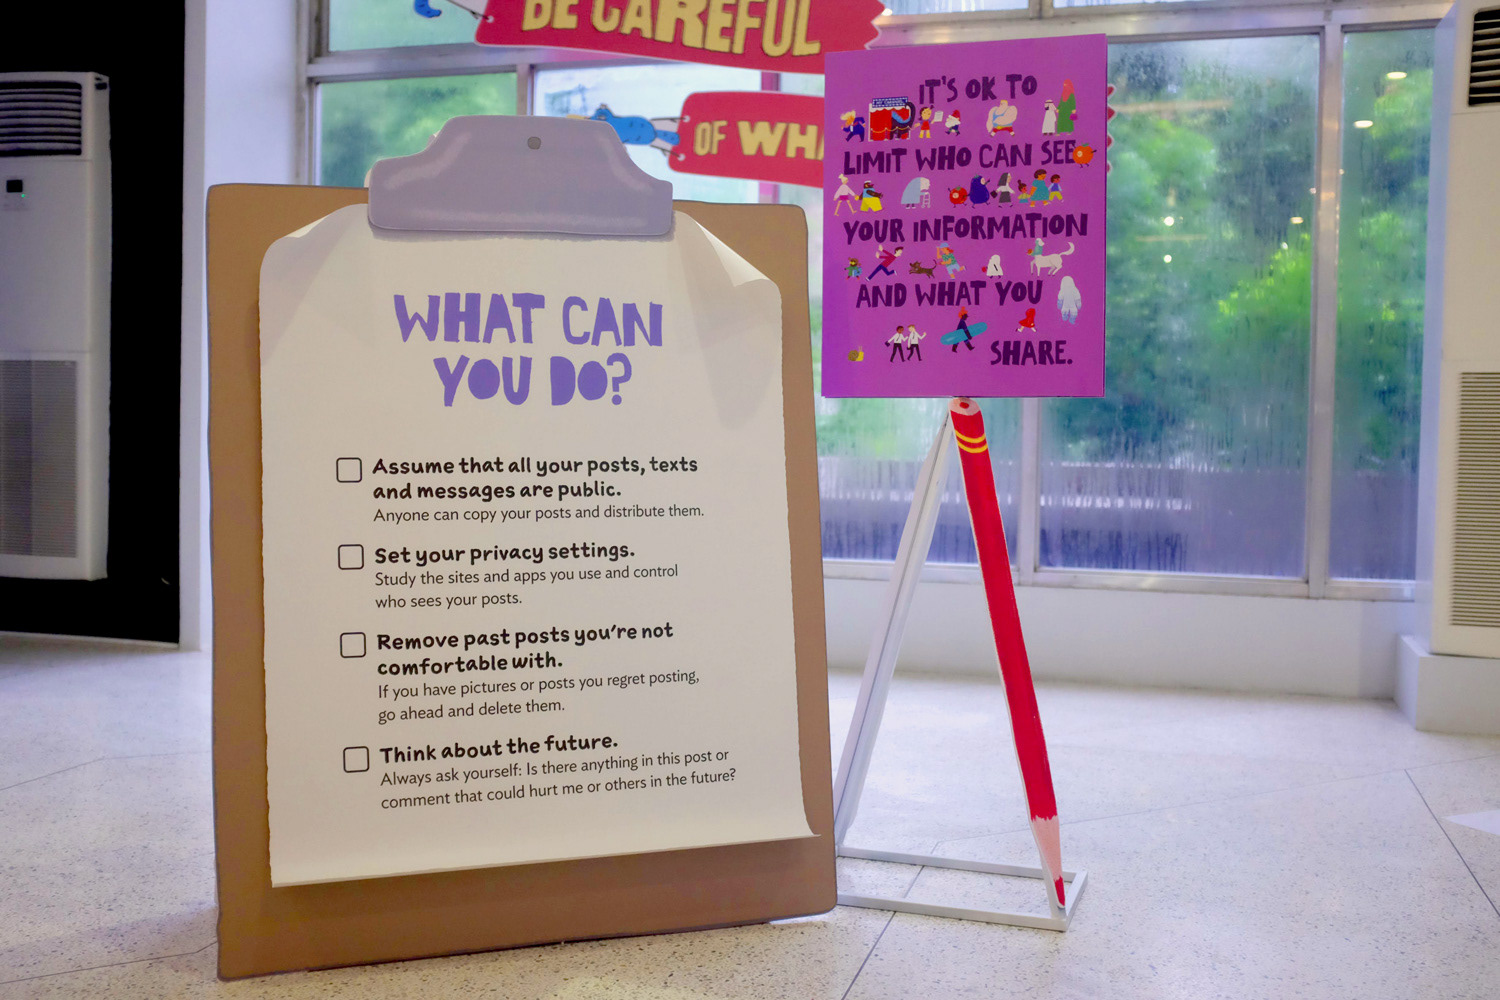 BE CAREFUL
OF
WHAT CAN
YOU DO?
Assume that all your posts, texts
and messages are public.
Anyone can copy your posts and distribute them.
Set your privacy settings.
Study the sites and apps you use and control
who sees your posts.
Remove past posts you're not
comfortable with.
If you have pictures or posts you regret posting,
go ahead and delete them.
Think about the future.
Always ask yourself: Is there anything in this post or
comment that could hurt me or others in the future?
IT'S OK TO
LIMIT WHO CAN SEE
YOUR INFORMATION
AND WHAT YOU
SHARE.